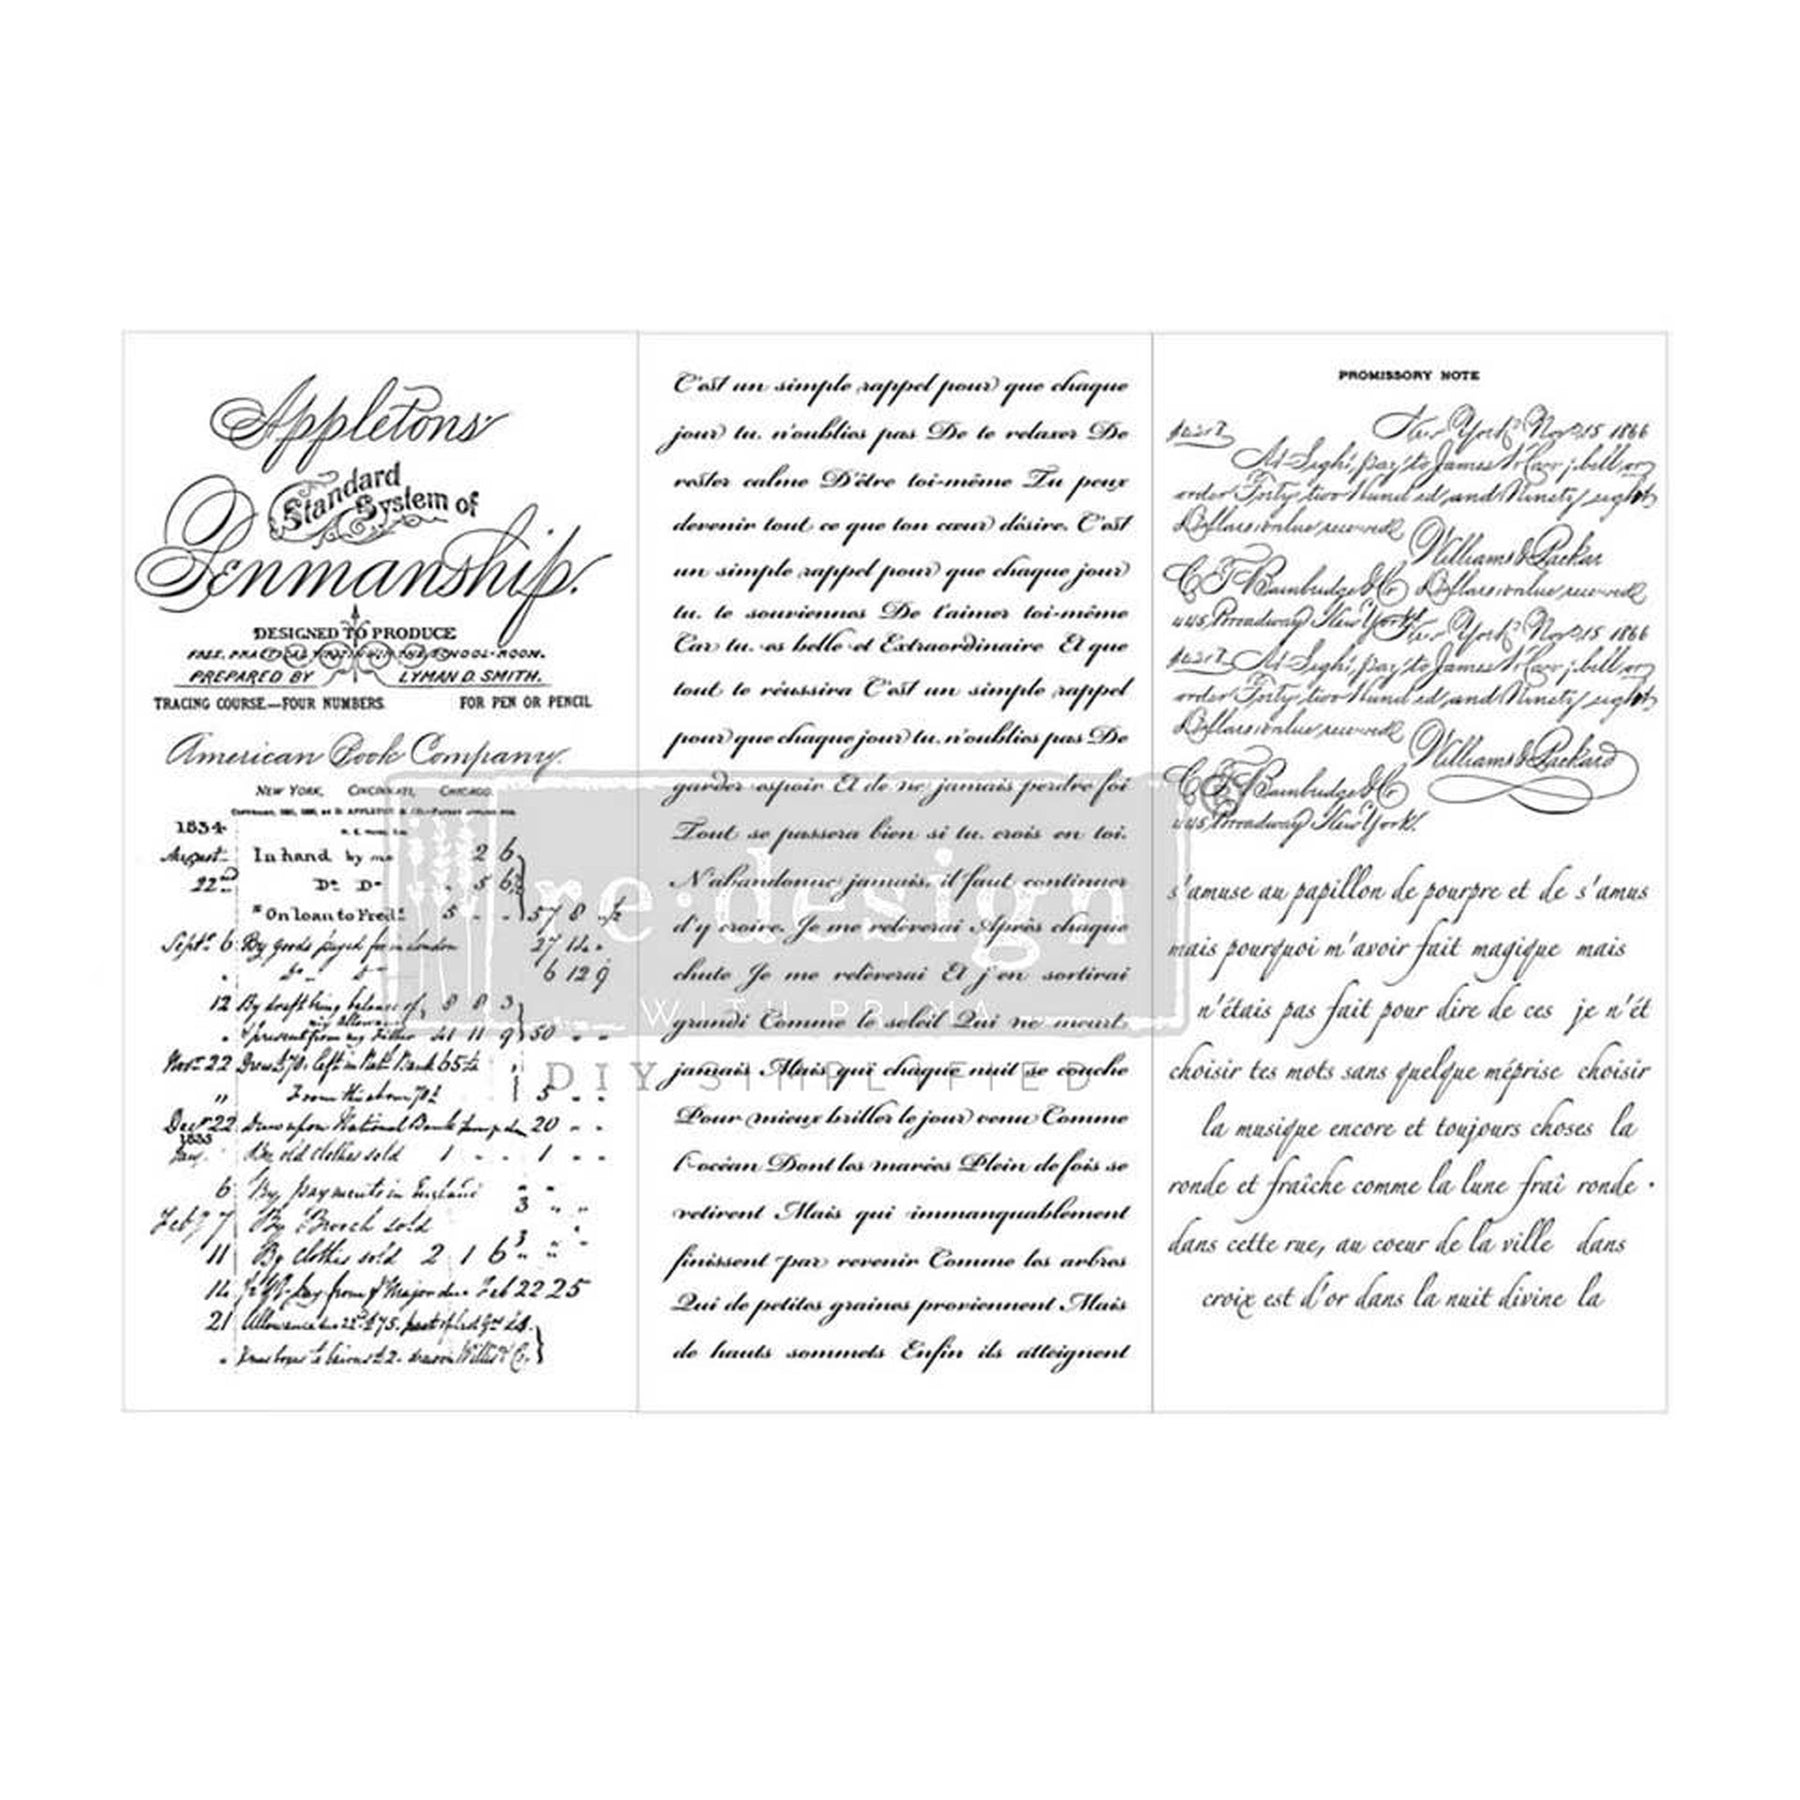 Appletons'
Standard
System of
Penmanship.
DESIGNED TO PRODUCE
FREE, PRACTICAL WRITING IN THE SCHOOL-ROOM.
PREPARED BY LYMAN D. SMITH.
TRACING COURSE—FOUR NUMBERS. FOR PEN OR PENCIL
American Book Company.
NEW YORK, CINCINNATI, CHICAGO.
1834
August In hand by me 2 6
22nd Do Do 5 6½
"On loan to Fred. 5 - - 57 8 ½
Sept. 6 By goods
6 12 9
12 By draft being balance of, 8 8 3
my allowance
" present from my Father 11 9 50 - -
Nov 22 Drew £70, left in Bank 65
" From this above 70£ 5 - -
Decr 22 Drew upon National Bank 20 - -
1835
Jany. By old clothes sold 1 - - 1 - -
6 By payments in England 3 " "
Feby 7 By Brooch sold 3 " "
11 By clothes sold 2 1 6
14 pay from Major due Feb 22 25
21 Allowance
C'est un simple rappel pour que chaque
jour tu. n'oublies pas De te relaxer De
rester calme D'être toi-même Tu peux
devenir tout ce que ton cœur désire. C'est
un simple rappel pour que chaque jour
tu. te souviennes De t'aimer toi-même
Car tu. es belle et Extraordinaire Et que
tout te réussira C'est un simple rappel
pour que chaque jour tu. n'oublies pas De
garder espoir Et de ne jamais perdre foi
Tout se passera bien si tu. crois en toi.
N'abandonne jamais, il faut continuer
d'y croire. Je me relèverai Après chaque
chute Je me relèverai Et j'en sortirai
grandi Comme le soleil Qui ne meurt
jamais Mais qui chaque nuit se couche
Pour mieux briller le jour venu Comme
l'océan Dont les marées Plein de fois se
retirent Mais qui immanquablement
finissent par revenir Comme les arbres
Qui de petites graines proviennent Mais
de hauts sommets Enfin ils atteignent
PROMISSORY NOTE
New York, Nov 15 1866
At Sight, pay to James W. Carr; bill or
order Forty two Hundred and Ninety eight
Dollars value received
Williams & Packar
C. T. Bambridge & Co Dollars value received
445, Broadway New York. New York, Nov 15 1866
At Sight, pay to James W. Carr; bill or
order Forty two Hundred and Ninety eight
Dollars value received
Williams & Packard
C. T. Bambridge & Co
445 Broadway New York.
s'amuse au papillon de pourpre et de s'amus
mais pourquoi m'avoir fait magique mais
n'étais pas fait pour dire de ces je n'ét
choisir tes mots sans quelque méprise choisir
la musique encore et toujours choses la
ronde et fraîche comme la lune fraî ronde •
dans cette rue, au coeur de la ville dans
croix est d'or dans la nuit divine la
re·design
WITH PRIMA
DIY SIMPLIFIED